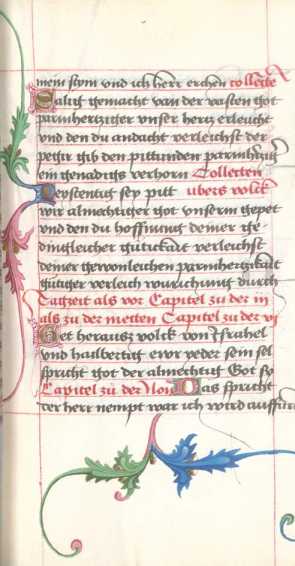 mein stym vnd ich herr erchen collecte
Saltig gemacht van der vasten got
parmhertziger vnser hertz erleucht
vnd den du andacht verleichst der
pegir gib den pittunden parmhertzig
ein genadigs verhorn Collecten
Beystentig sey pitt vbers volck
wir almechtiger got vnserm gepet
vnd den du hoffnung deiner ge
dingleicher gütickait verleichst
deiner gewonleichen parmhertzikait
gütiger verleich würchung durch
Tagzeit als vor Capitel zu der in
als zu der metten Capitel zu der vj
Get heraus volck von Israhel
vnd hailbertig ewr yeder sein sel
spricht got der almechtig Got sy
Capitel zů der Non Das spricht
der herr nempt war ich wird auffür